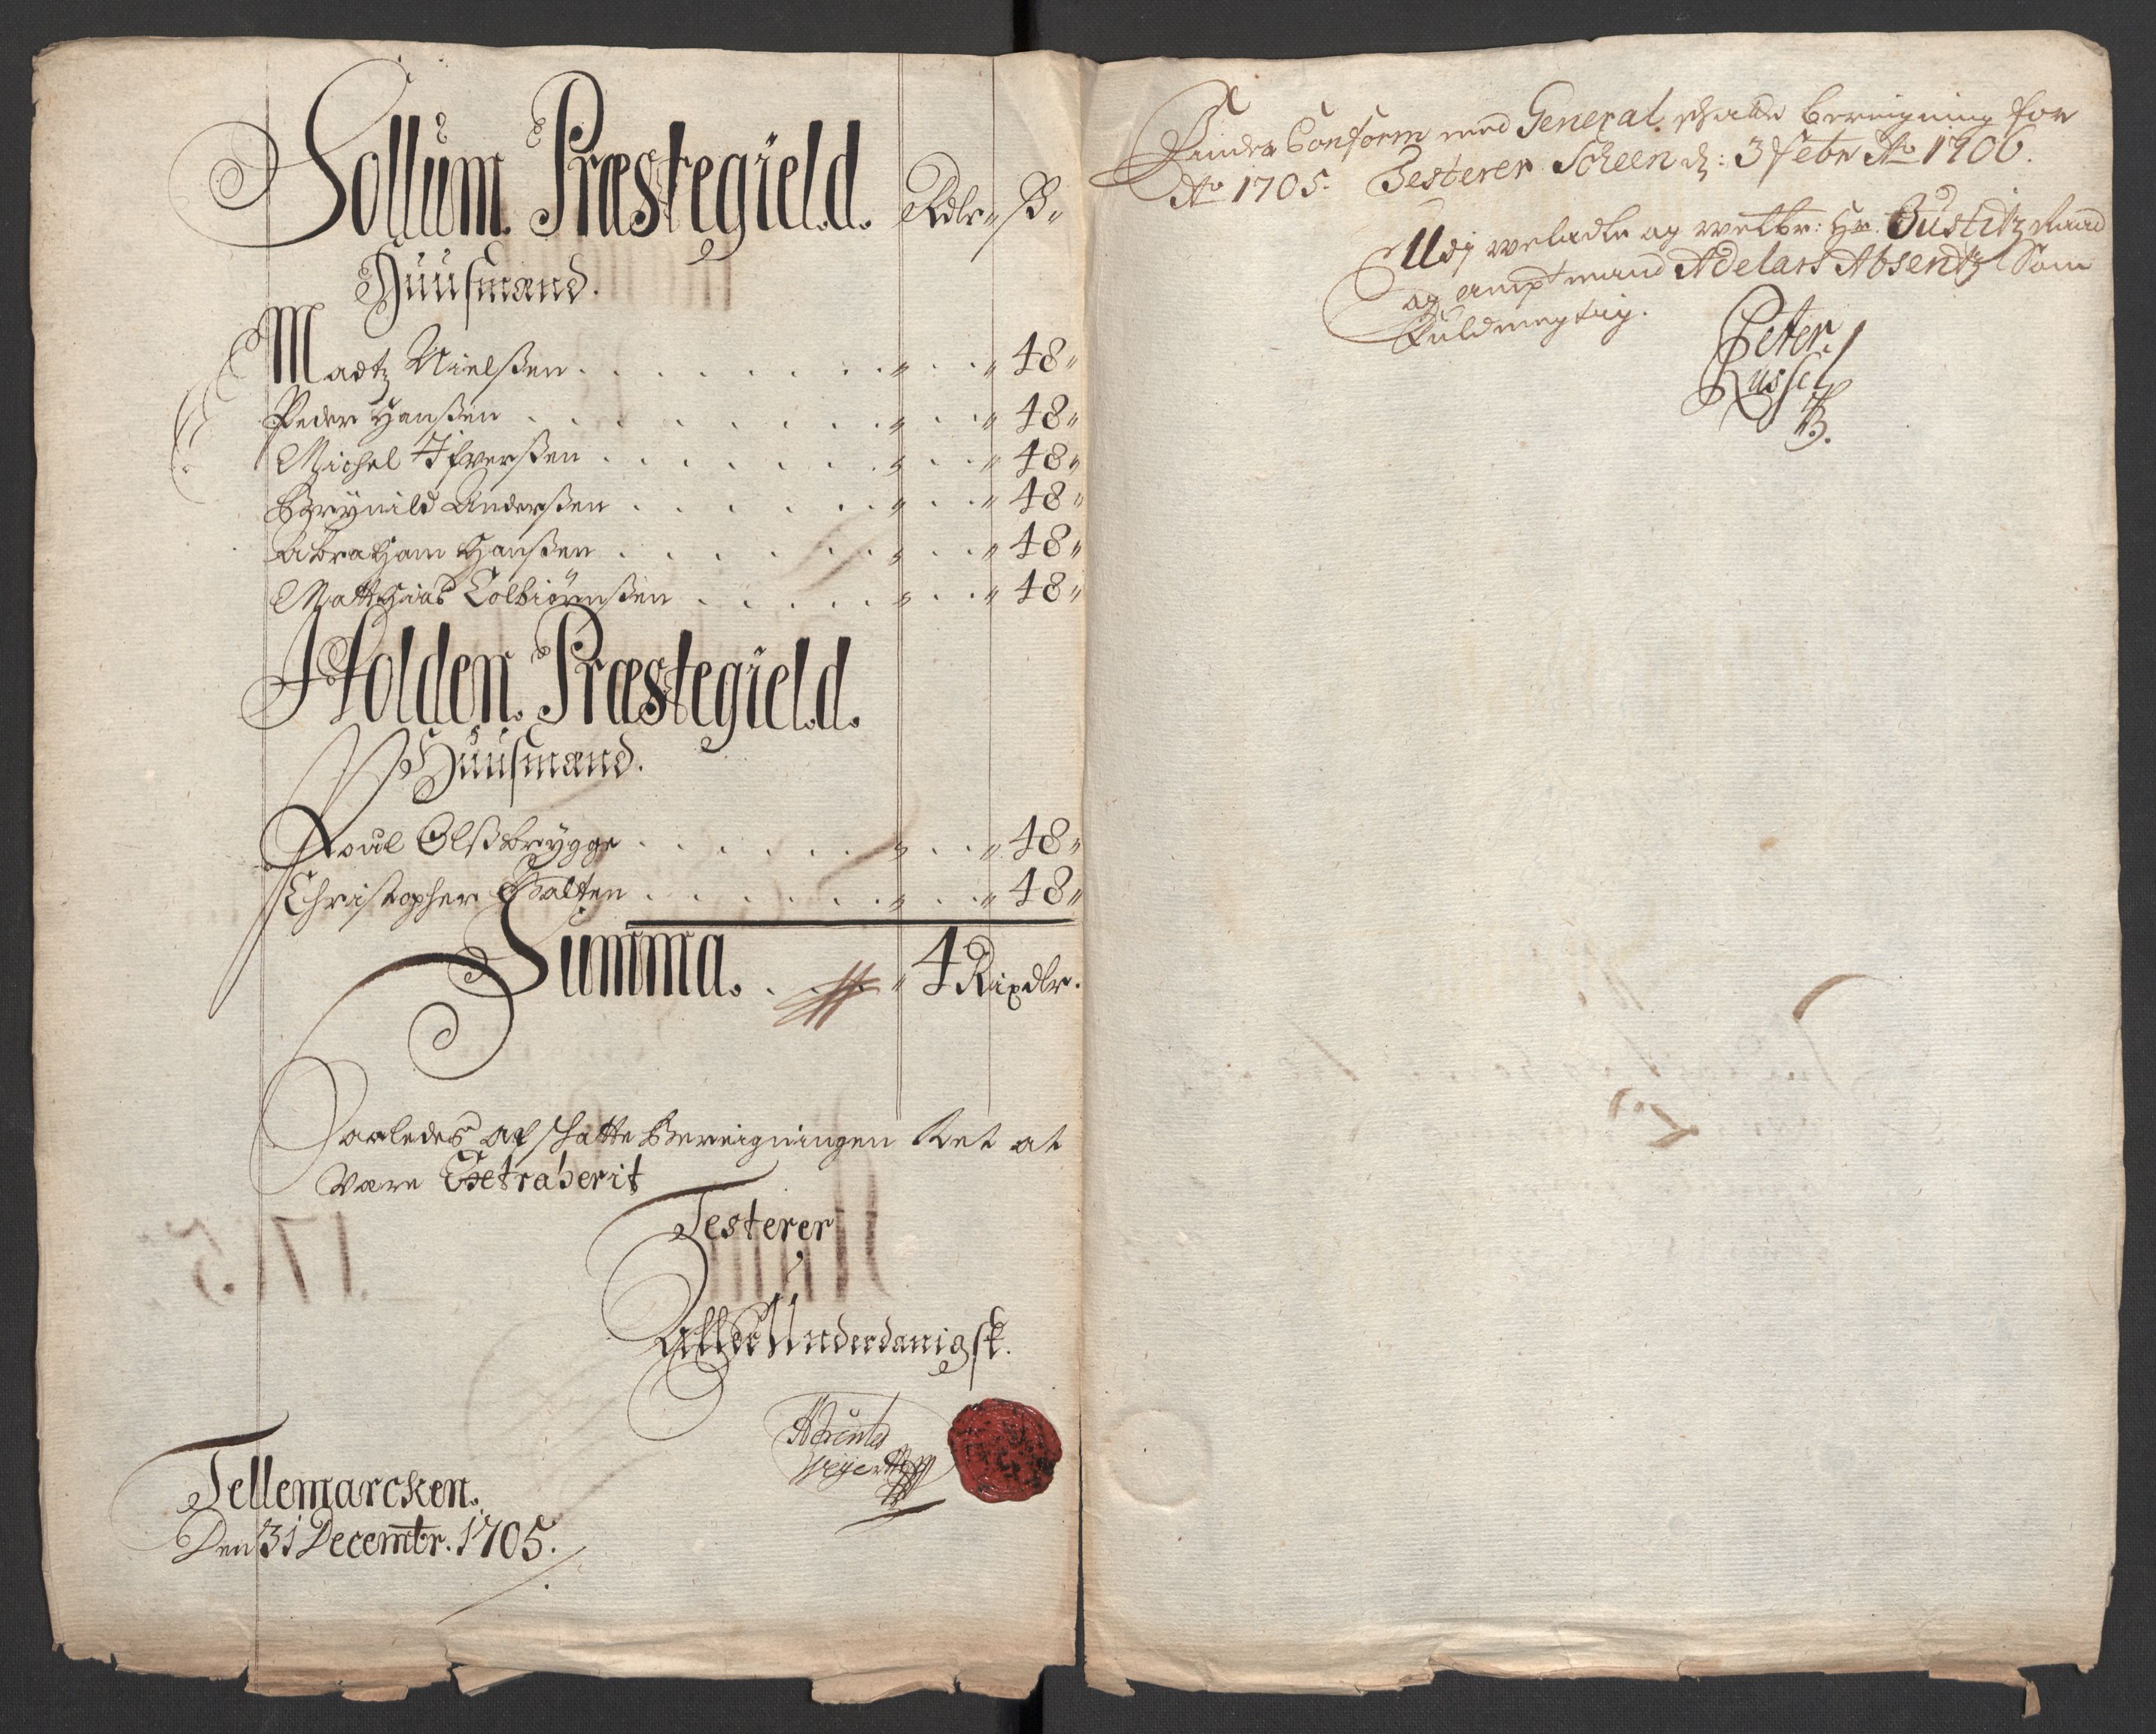 Sollum. Præstegield. Rdlr„ ß„
Huusmænd.
Madtz Nielßen . . . . . . . . „ . . „ 48„
Peder Hanßen . . . . . . . . „ . . „ 48„
Michel Ifverßen . . . . . . . „ . . „ 48„
Brynild Anderßen . . . . . . „ . . „ 48„
Abraham Hanßen . . . . . . „ . . „ 48„
Matthias Tolbiörnßen . . . . . „ . . „ 48„
Holden. Præstegield.
Huusmænd.
Poul Olßbrygge . . . . . . „ . . „ 48„
Christopher Balten . . . . . . „ . . „ 48„
Summa. . . . „ 4 Rixdlr.
Saaledes at schatte Bereigningen Ret at
være Extraherit
Testerer
Aller Underdanigst.
Weyer
Tellemarcken.
Den 31 Decembr. 1705.
Conform med General schatte Bereigning for
Ao 1705. Testerer Scheen d: 3 Febr Ao 1706.
Udj veladle og velbr: Hr. Justitz Raad
og amptmand Adelars Absentz Som
Fuldmegtig.
Peter
Russel